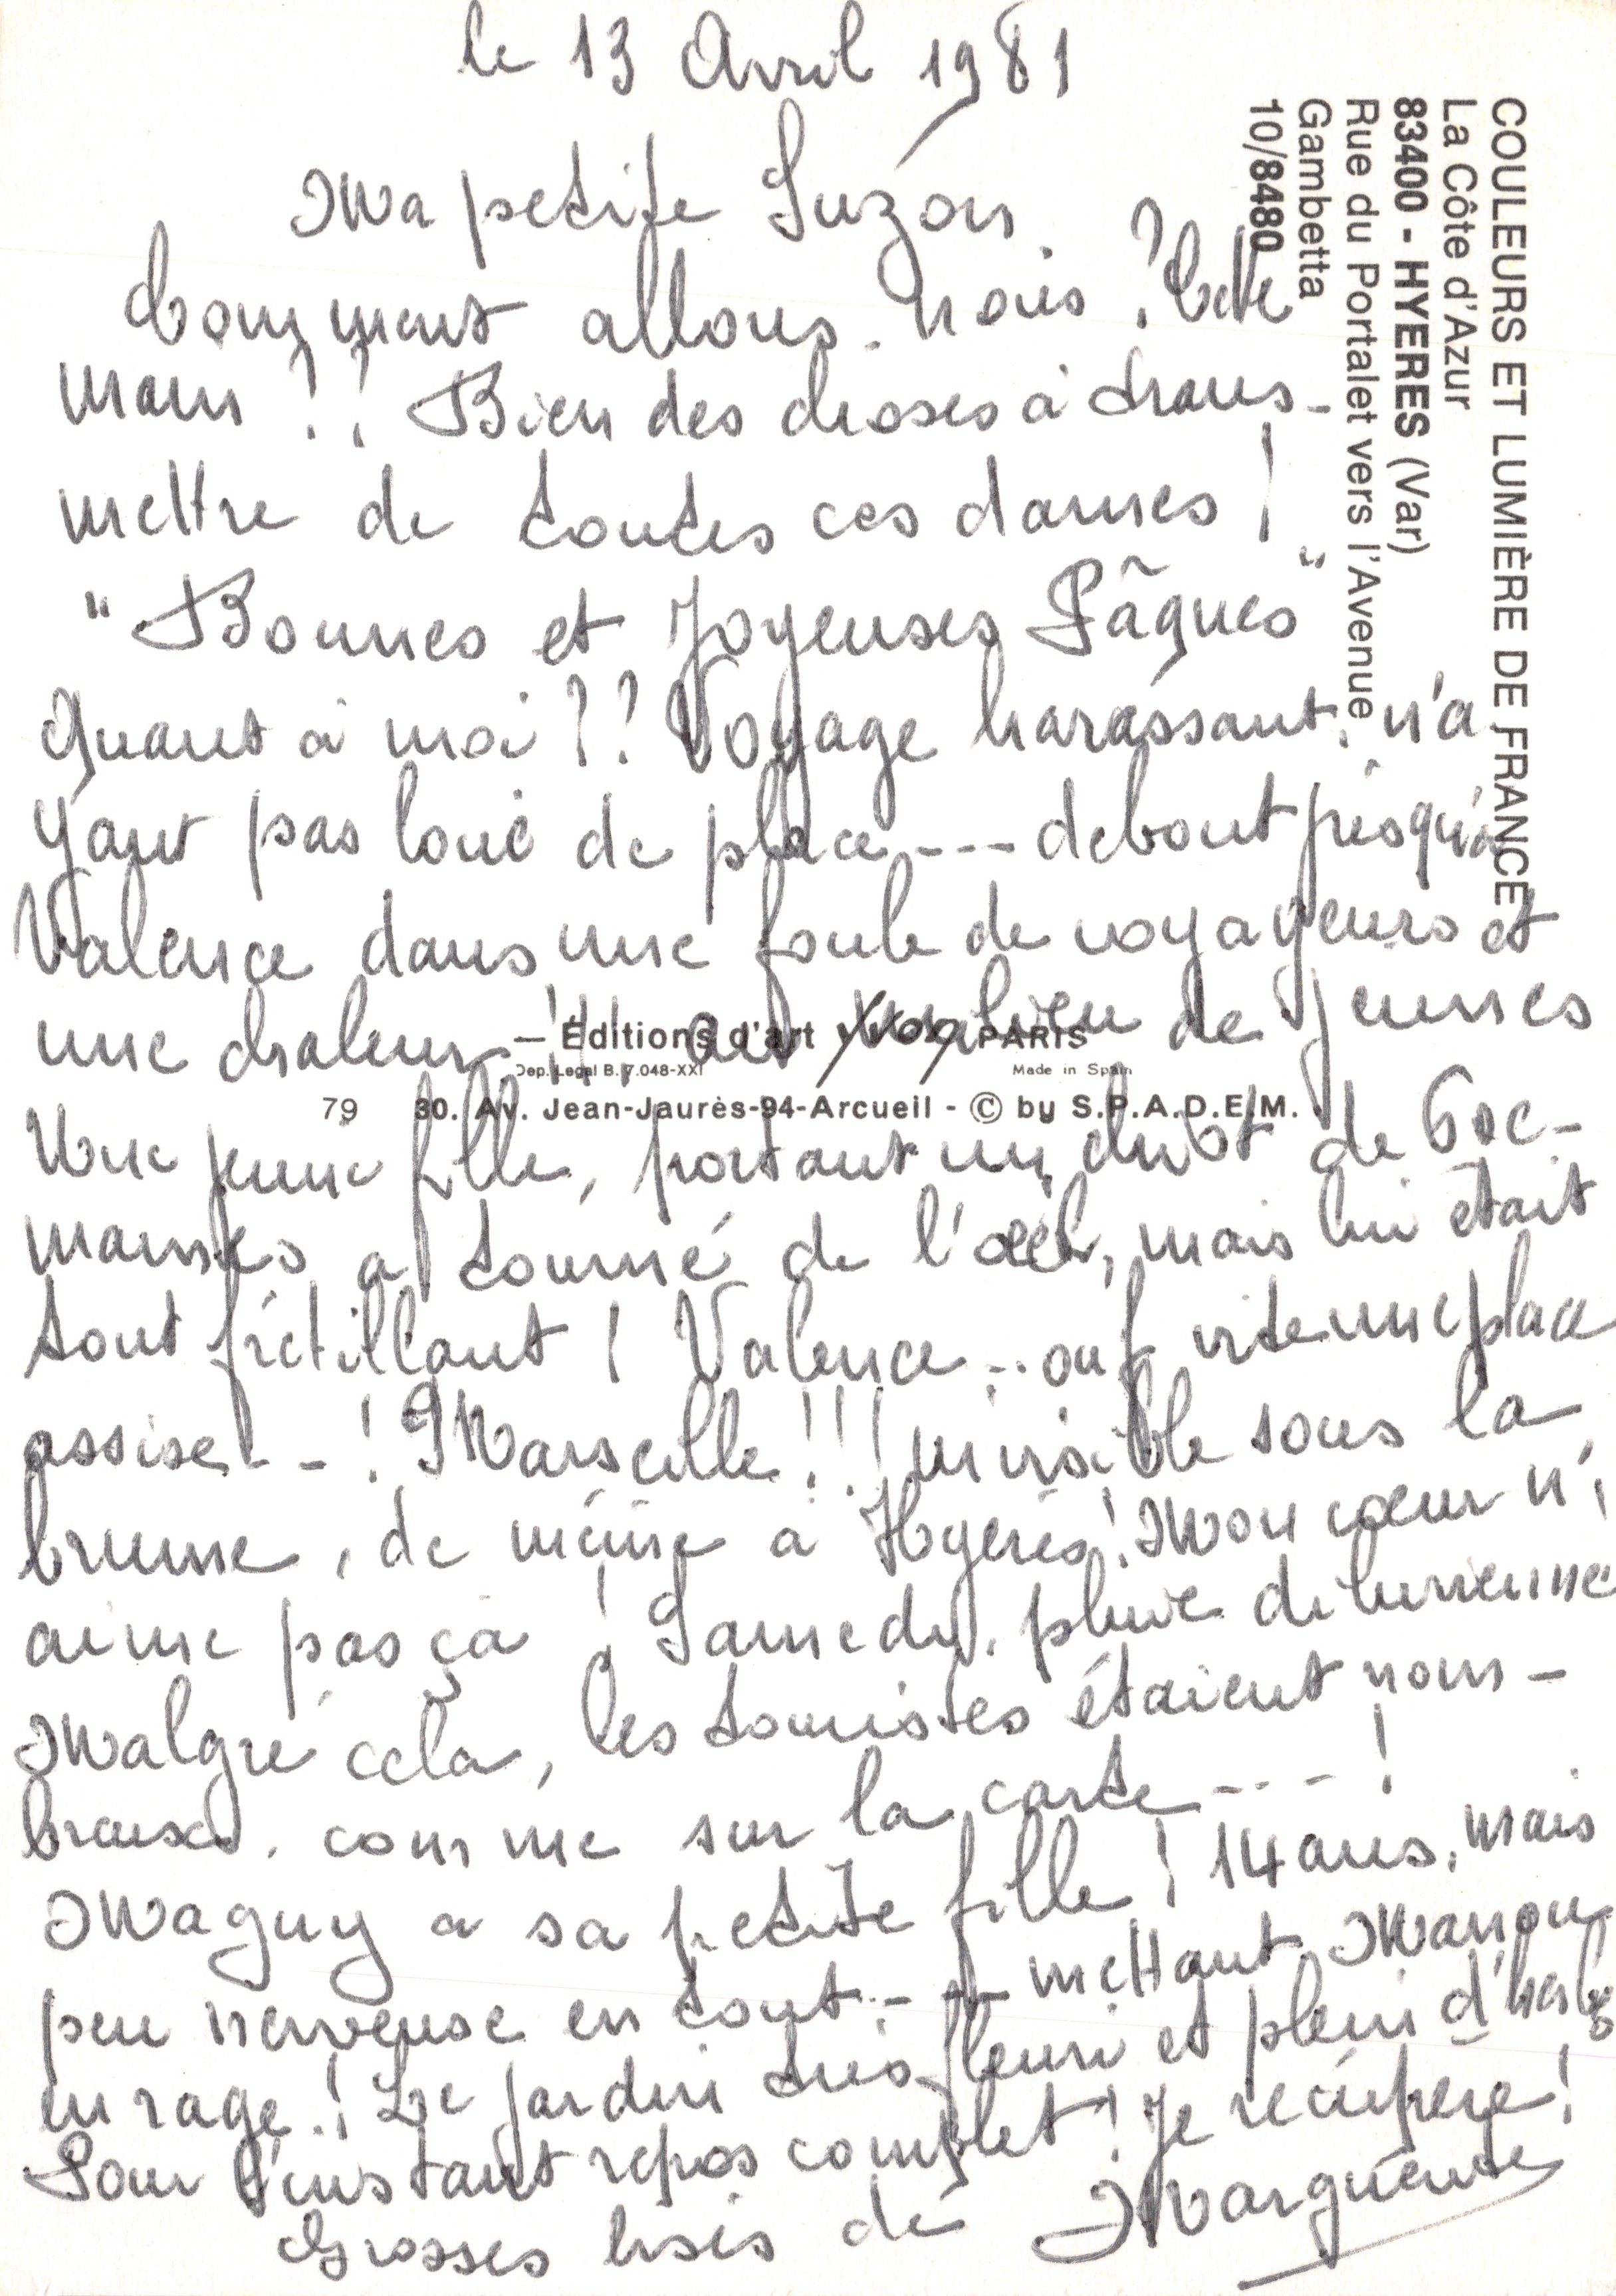 le 13 Avril 1981
Ma petite Suzon.
Comment allons-nous ? Cette
main ?! Bien des choses à trans-
mettre de toutes ces dames !
"Bonnes et Joyeuses Pâques"
Quant à moi ?? Voyage harassant, n'a
yant pas loué de place --- debout jusqu'à
Valence dans une foule de voyageurs et
une chaleur !!! au milieu de jeunes
Une jeune fille, portant un chiot de 6 se-
maines a tourné de l'œil, mais lui était
tout frétillant ! Valence... ouf vite une place
assise -- ! Marseille !!! invisible sous la
brume, de même à Hyères ! Mon cœur n'
aime pas ça ! Samedi, pluie diluvienne
Malgré cela, les touristes étaient nom-
breux, comme sur la carte --- !
Maguy a sa petite fille ! 14 ans, mais
peu nerveuse en tout --- mettant Manou
en rage ! Le jardin très fleuri et plein d'herbe
Pour l'instant repos complet ! Je récupère !
Grosses bises de Marguerite
COULEURS ET LUMIÈRE DE FRANCE
La Côte d'Azur
83400 - HYERES (Var)
Rue du Portalet vers l'Avenue
Gambetta
10/8480
— Éditions d'art Yvon PARIS
Dep. Legal B. 7.048-XXI Made in Spain
79 30. Av. Jean-Jaurès-94-Arcueil - © by S.P.A.D.E.M.